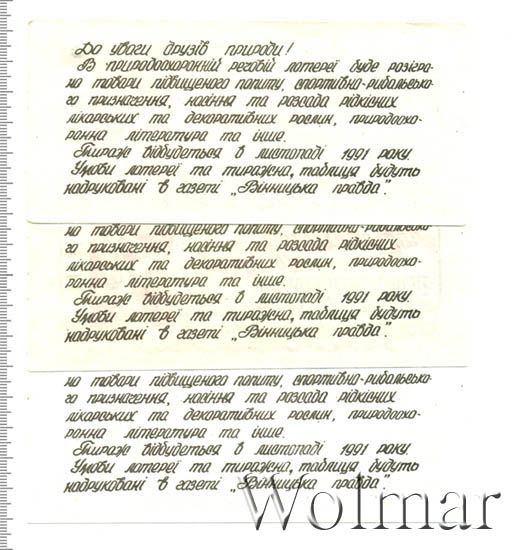 До уваги друзів природи!
В природоохоронній реговій лотереї буде розігра-
но товари підвищеного попиту, спортивно-рибальсько-
го призначення, насіння та розсада рідкісних
лікарських та декоративних рослин, природоохо-
ронна література та інше.
Тираж відбудеться в листопаді 1991 року.
Умови лотереї та тиражна, таблиця будуть
надруковані в газеті „Вінницька правда".
но товари підвищеного попиту, спортивно-рибальсько-
го призначення, насіння та розсада рідкісних
лікарських та декоративних рослин, природоохо-
ронна література та інше.
Тираж відбудеться в листопаді 1991 року.
Умови лотереї та тиражна, таблиця будуть
надруковані в газеті „Вінницька правда".
но товари підвищеного попиту, спортивно-рибальсько-
го призначення, насіння та розсада рідкісних
лікарських та декоративних рослин, природоохо-
ронна література та інше.
Тираж відбудеться в листопаді 1991 року.
Умови лотереї та тиражна, таблиця будуть
надруковані в газеті „Вінницька правда".
Wolmar